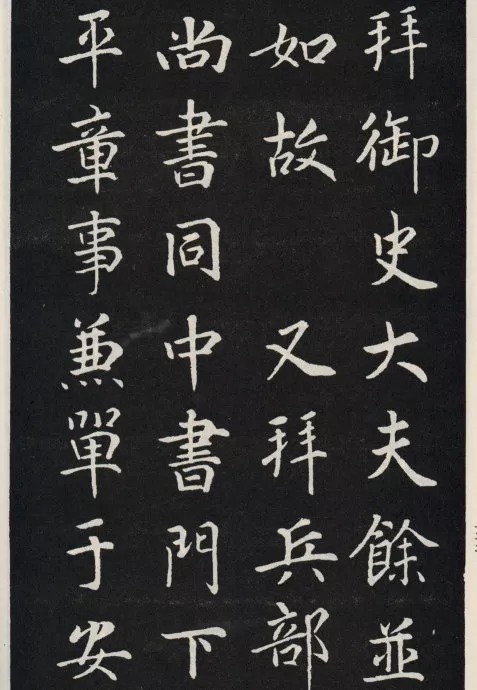 拜御史大夫餘並
如故 又拜兵部
尚書同中書門下
平章事兼單于安